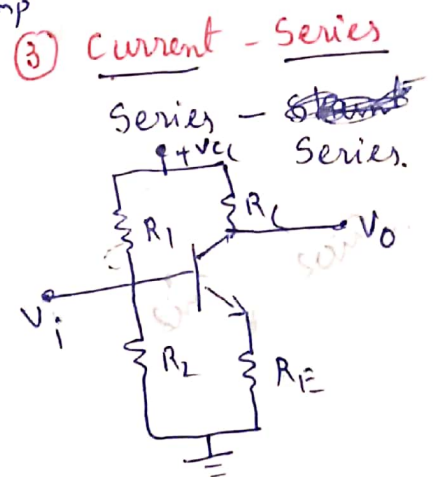 mp
③ Current - Series
Series -
Series.
+Vcc
R1
RC
Vo
Vi
R2
RE